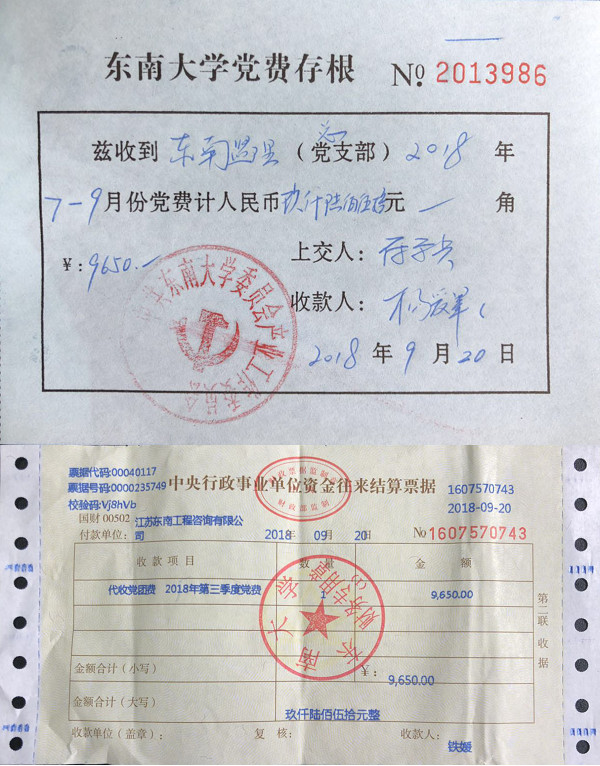 东南大学党费存根 № 2013986
兹收到 东南监理 （党支部）2018 年
7-9月份党费计人民币玖仟陆佰伍拾元 一 角
￥：9650.一
上交人：
收款人：
2018 年 9 月 20 日
中共东南大学委员会产业工作委员会
票据代码:00040117
票据号码:0000235749
校验码:Vj8hVb
中央行政事业单位资金往来结算票据
1607570743
2018-09-20
国财 00502
付款单位：江苏东南工程咨询有限公司
2018 年 09 月 20 日
№1607570743
收款项目 数量 金额
代收党团费 2018年第三季度党费 1 9,650.00
金额合计（小写） ￥：9,650.00
金额合计（大写） 玖仟陆佰伍拾元整
收款单位（盖章）： 复核： 收款人：铁媛
第二联 收据
财政票据监制
财政部监制
东南大学
财务专用章
(1)